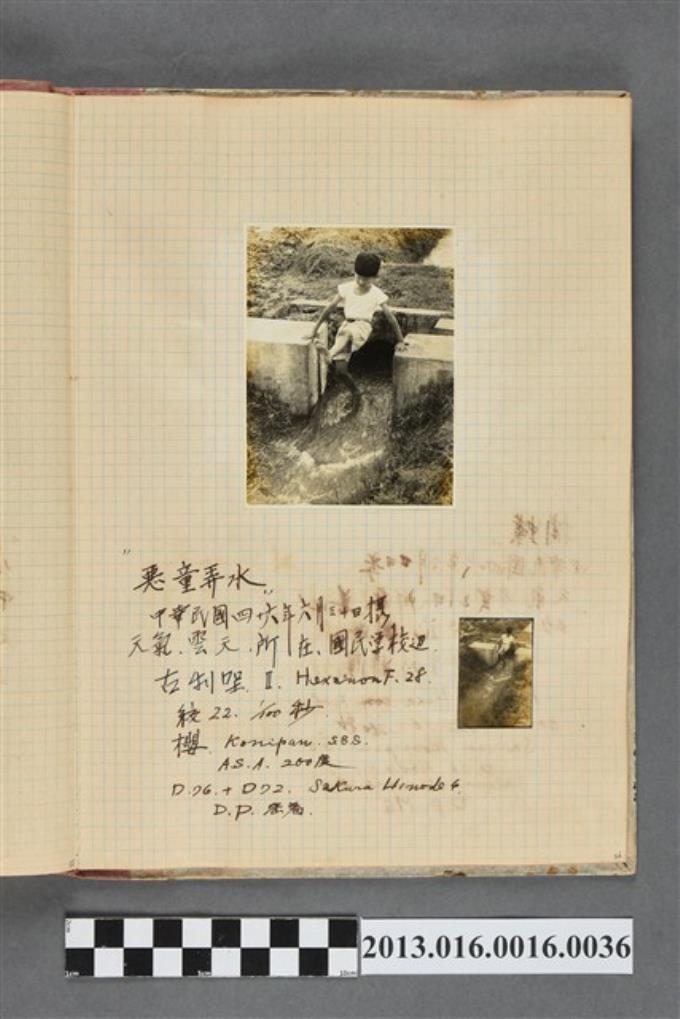 "惡童弄水"
中華民國四十六年六月三十日攝
天氣.雲天.所在.國民學校边.
古利呢.Ⅱ. Hexanon F. 28.
絞 22. 1/100 秒.
櫻. Konipan. SSS.
A.S.A. 200度
D.76. + D72. Sakura Hinode 4.
D.P.
2013.016.0016.0036
1cm 5cm 10cm